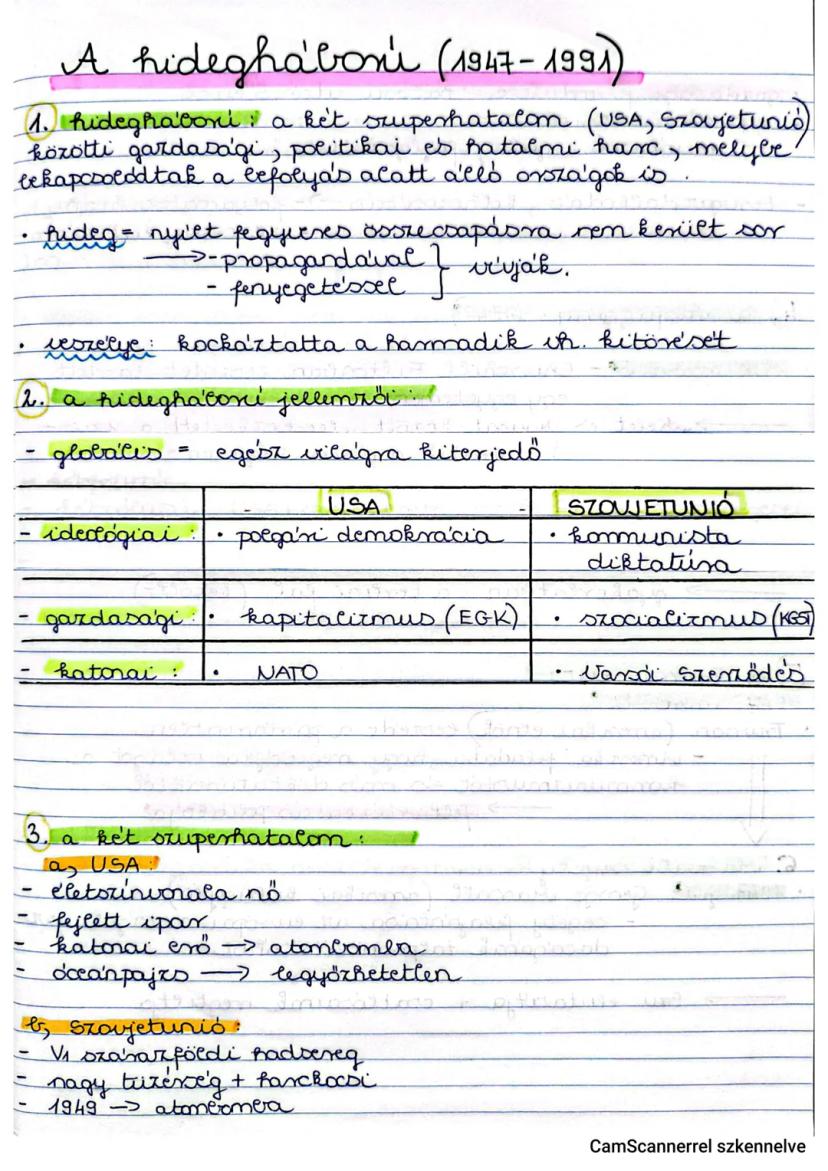 A hidegháború (1947-1991)
1. hidegháború: a két szuperhatalom (USA, Szovjetunió)
közötti gazdasági, politikai és hatalmi harc, melybe
bekapcsolódtak a befolyás alatt álló országok is.
· hideg = nyílt fegyveres összecsapásra nem került sor
→ - propagandával } vívják.
- fenyegetéssel
· veszélye: kockáztatta a harmadik vh. kitörését
2. a hidegháború jellemzői:
- globális = egész világra kiterjedő
- USA - SZOVJETUNIÓ
- ideológiai: · polgári demokrácia · kommunista
diktatúra
- gazdasági: · kapitalizmus (EGK) · szocializmus (KGST)
- katonai: · NATO · Varsói Szerződés
3. a két szuperhatalom:
a, USA:
- életszínvonala nő
- fejlett ipar
- katonai erő → atombomba
- óceánpajzs → legyőzhetetlen
b, Szovjetunió:
- V1 szárazföldi hadsereg
- nagy tüzérség + harckocsi
- 1949 → atombomba
CamScannerrel szkennelve